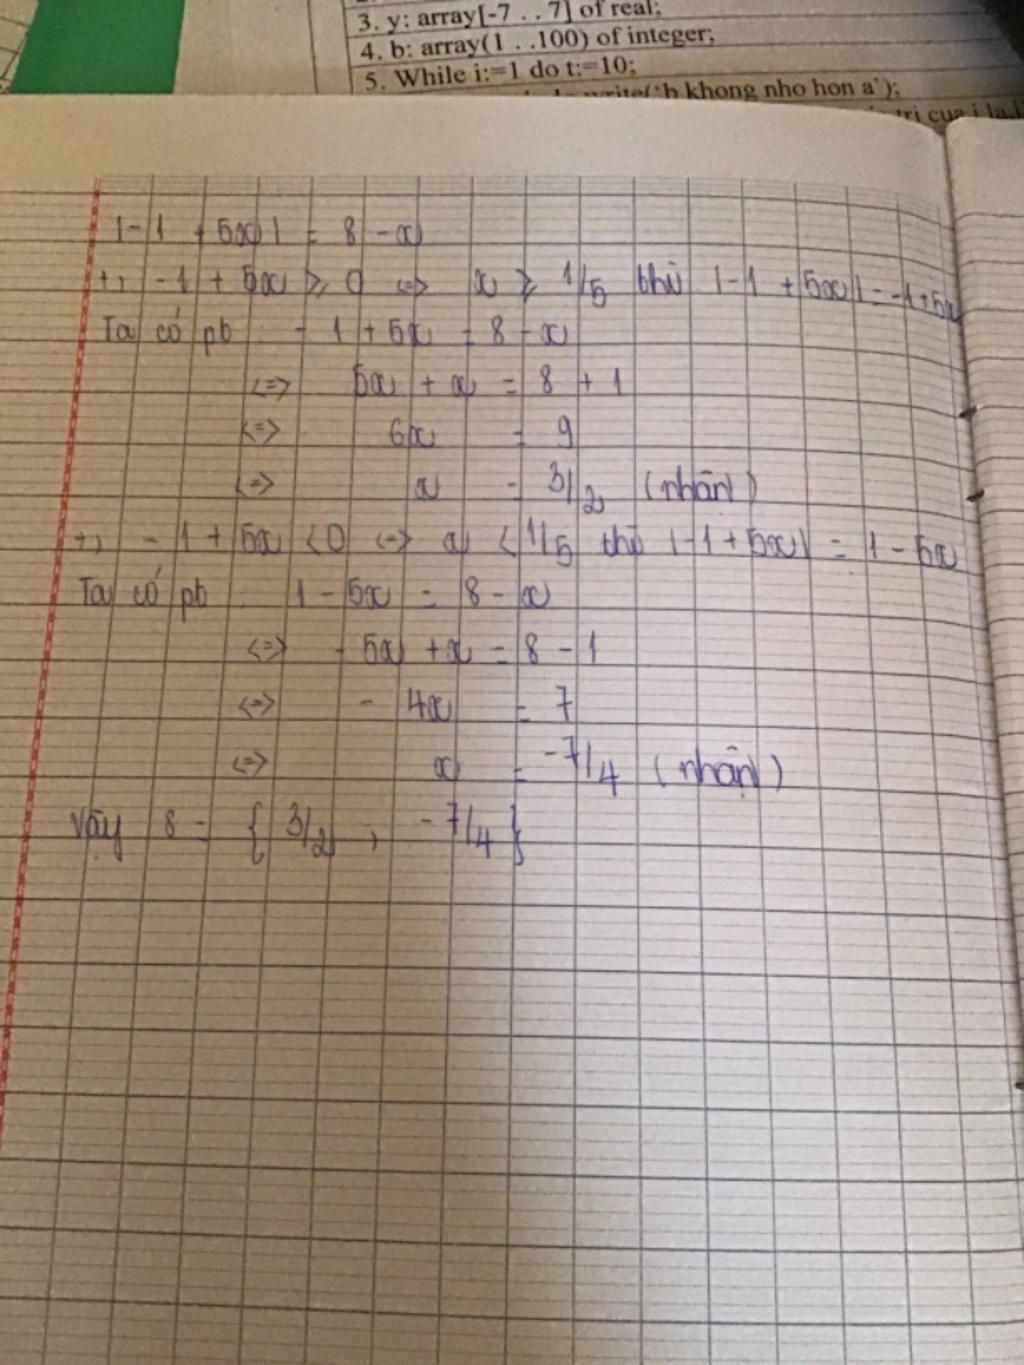 3. y: array[-7 . . 7] of real;
4. b: array(1 . .100) of integer;
5. While i:=1 do t:=10;
write('b khong nho hon a');
tri cua i la
|-1 + 5x| = 8 - x
+, -1 + 5x ≥ 0 <=> x ≥ 1/5 thì |-1 + 5x| = -1+5x
Ta có pt - 1 + 5x = 8 - x
<=> 5x + x = 8 + 1
<=> 6x = 9
<=> x = 3/2 (nhận)
+, - 1 + 5x < 0 <=> x < 1/5 thì |-1 + 5x| = 1 - 5x
Ta có pt 1 - 5x = 8 - x
<=> - 5x + x = 8 - 1
<=> - 4x = 7
<=> x = -7/4 (nhận)
Vậy S = { 3/2 , - 7/4 }